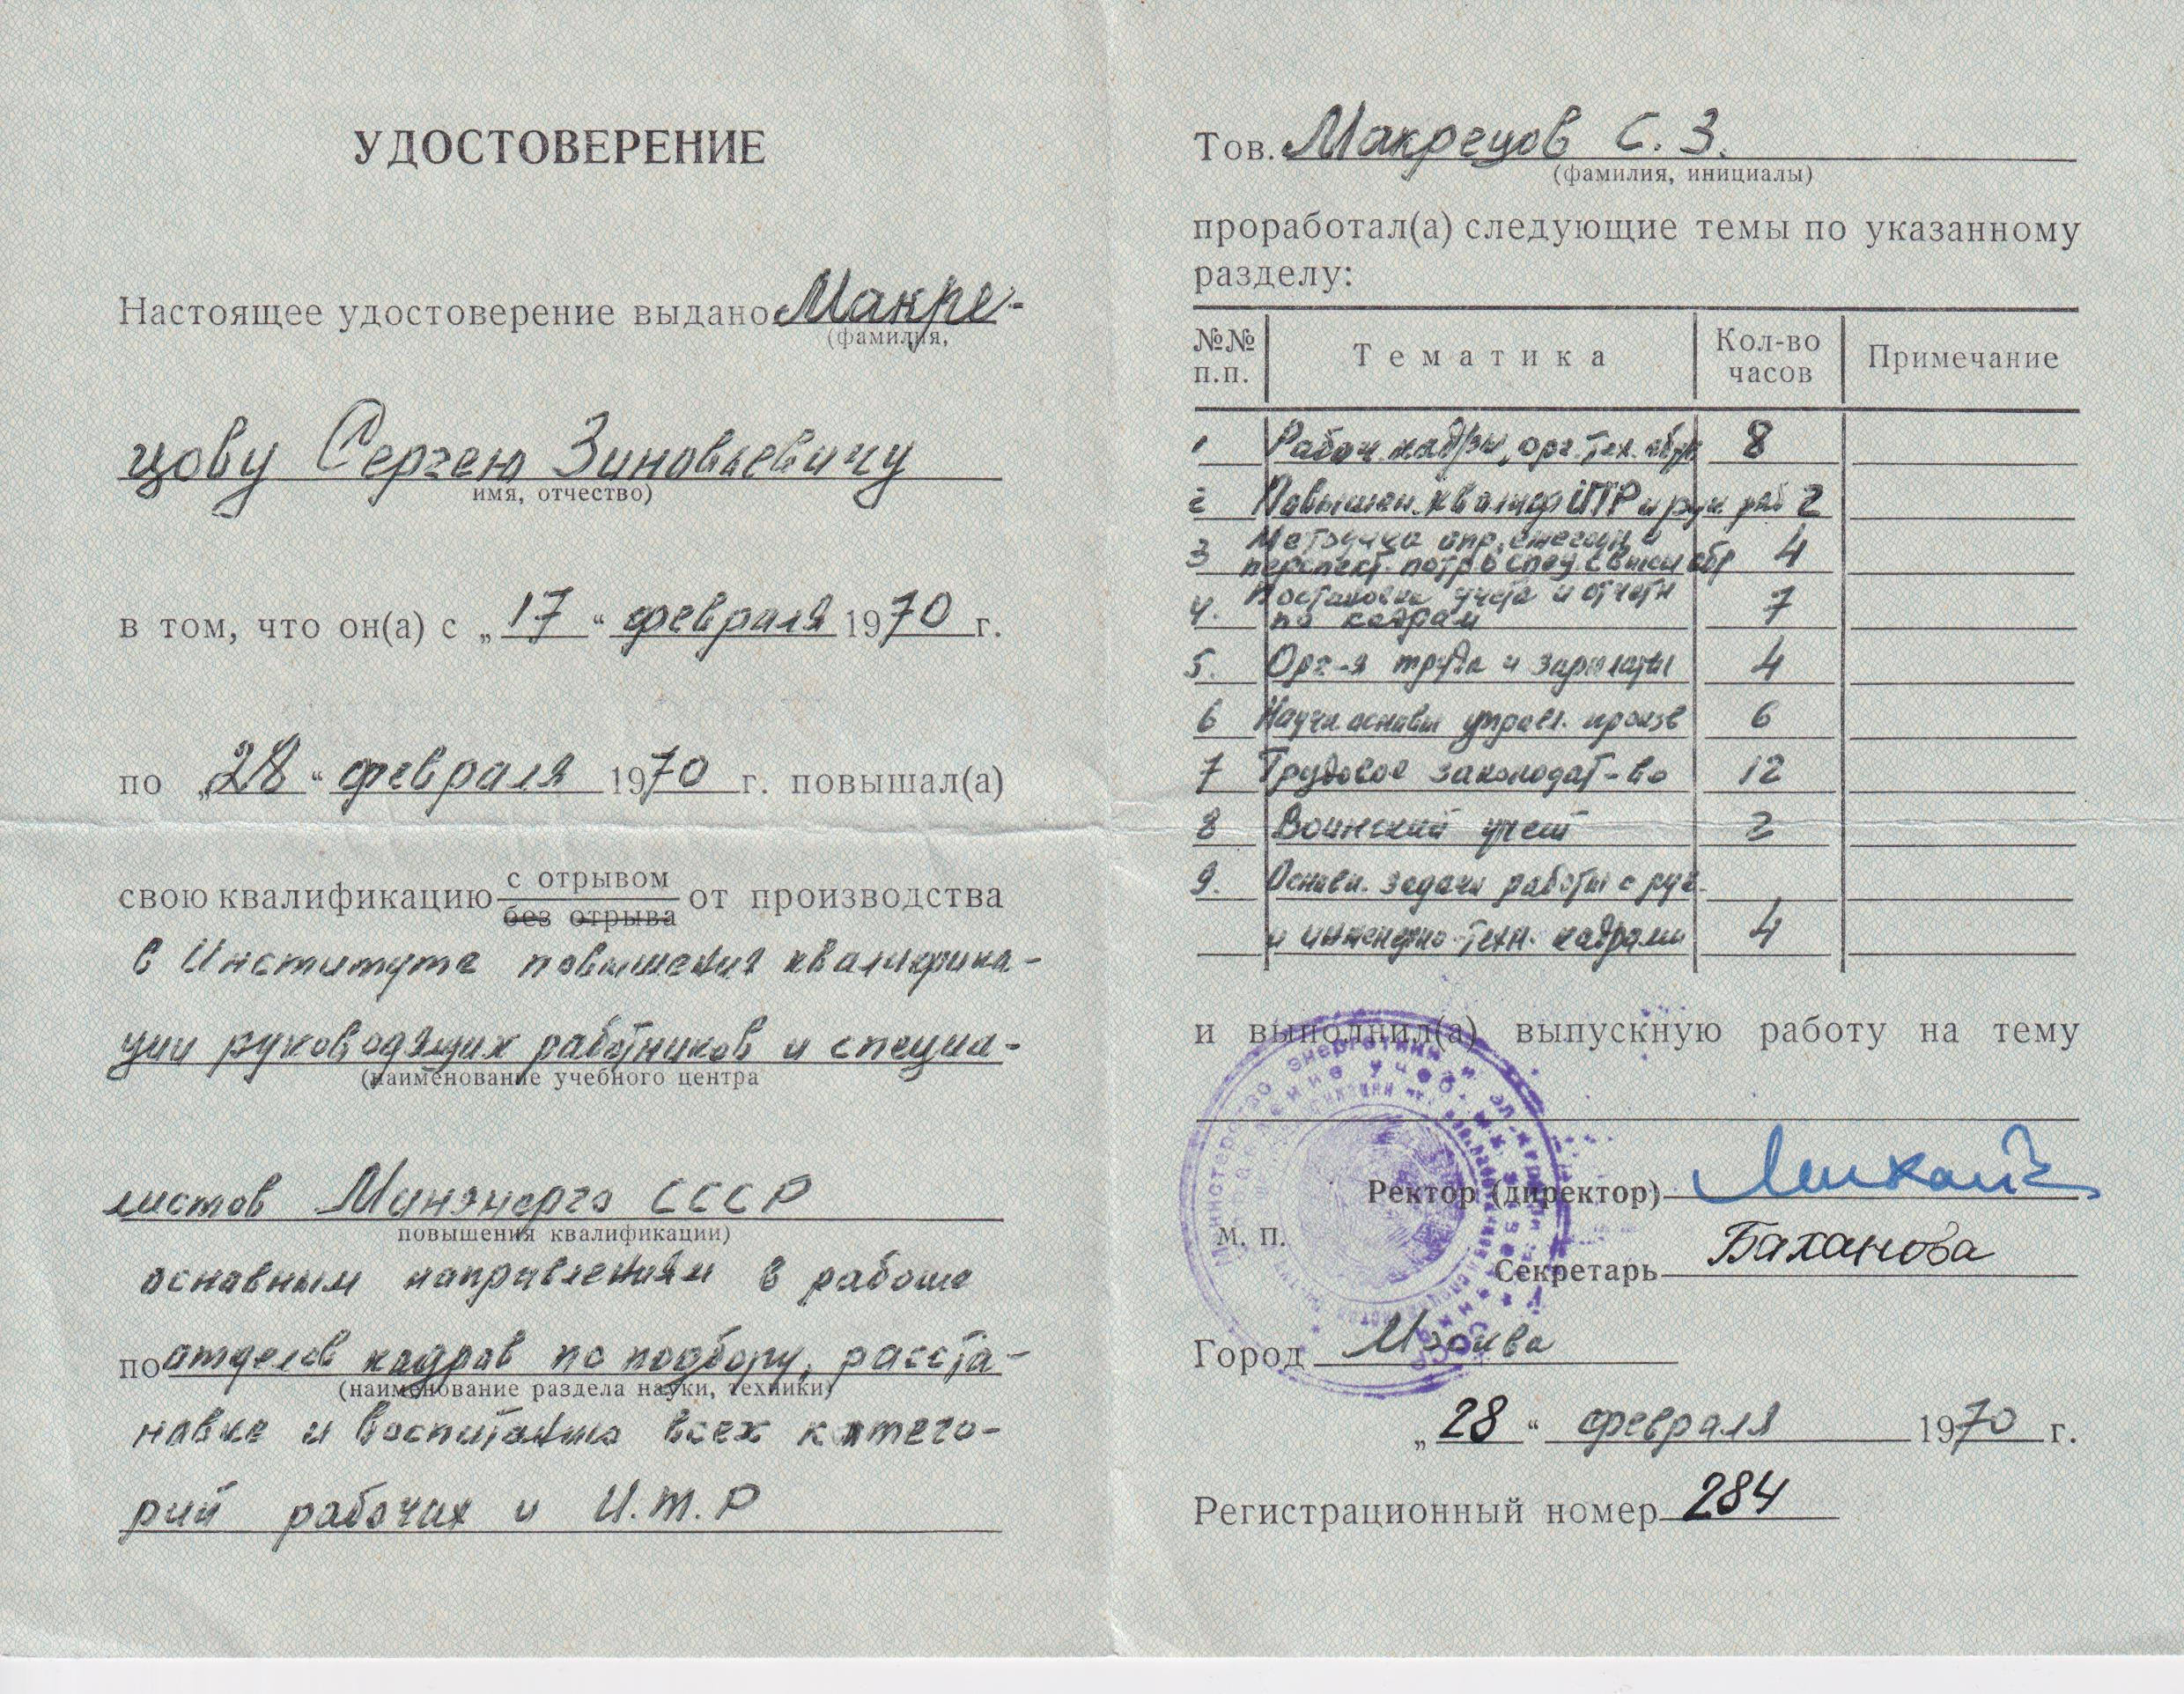 УДОСТОВЕРЕНИЕ
Настоящее удостоверение выдано Макре-
(фамилия,
цову Сергею Зиновьевичу
имя, отчество)
в том, что он(а) с „17“ февраля 1970 г.
по „28“ февраля 1970 г. повышал(а)
свою квалификацию с отрывом от производства
без отрыва
в Институте повышения квалифика-
ции руководящих работников и специа-
(наименование учебного центра
листов Минэнерго СССР
повышения квалификации)
основным направлениям в работе
по отделов кадров по подбору, расста-
(наименование раздела науки, техники)
новке и воспитанию всех катего-
рий рабочих и И.Т.Р
Тов. Макрецов С. З.
(фамилия, инициалы)
проработал(а) следующие темы по указанному
разделу:
№№ п.п. Тематика Кол-во часов Примечание
1 Рабоч. кадры, орг. тех. обуч 8
2 Повышен. квалиф ИТР и рук раб 2
3 Методика опр. ежегодн и
перспект. потр в спец. с высш обр 4
4. Постановка учета и отчетн
по кадрам 7
5. Орг-я труда и зарплаты 4
6 Научн. основы управл. произв 6
7 Трудовое законодат-во 12
8 Воинский учет 2
9. Основн. задачи работы с рук.
и инженерно-техн. кадрами 4
и выполнил(а) выпускную работу на тему
Министерство энергетики и
Ректор (директор)
М. П.
Секретарь Баханова
Город Москва
„28“ февраля 1970 г.
Регистрационный номер 284